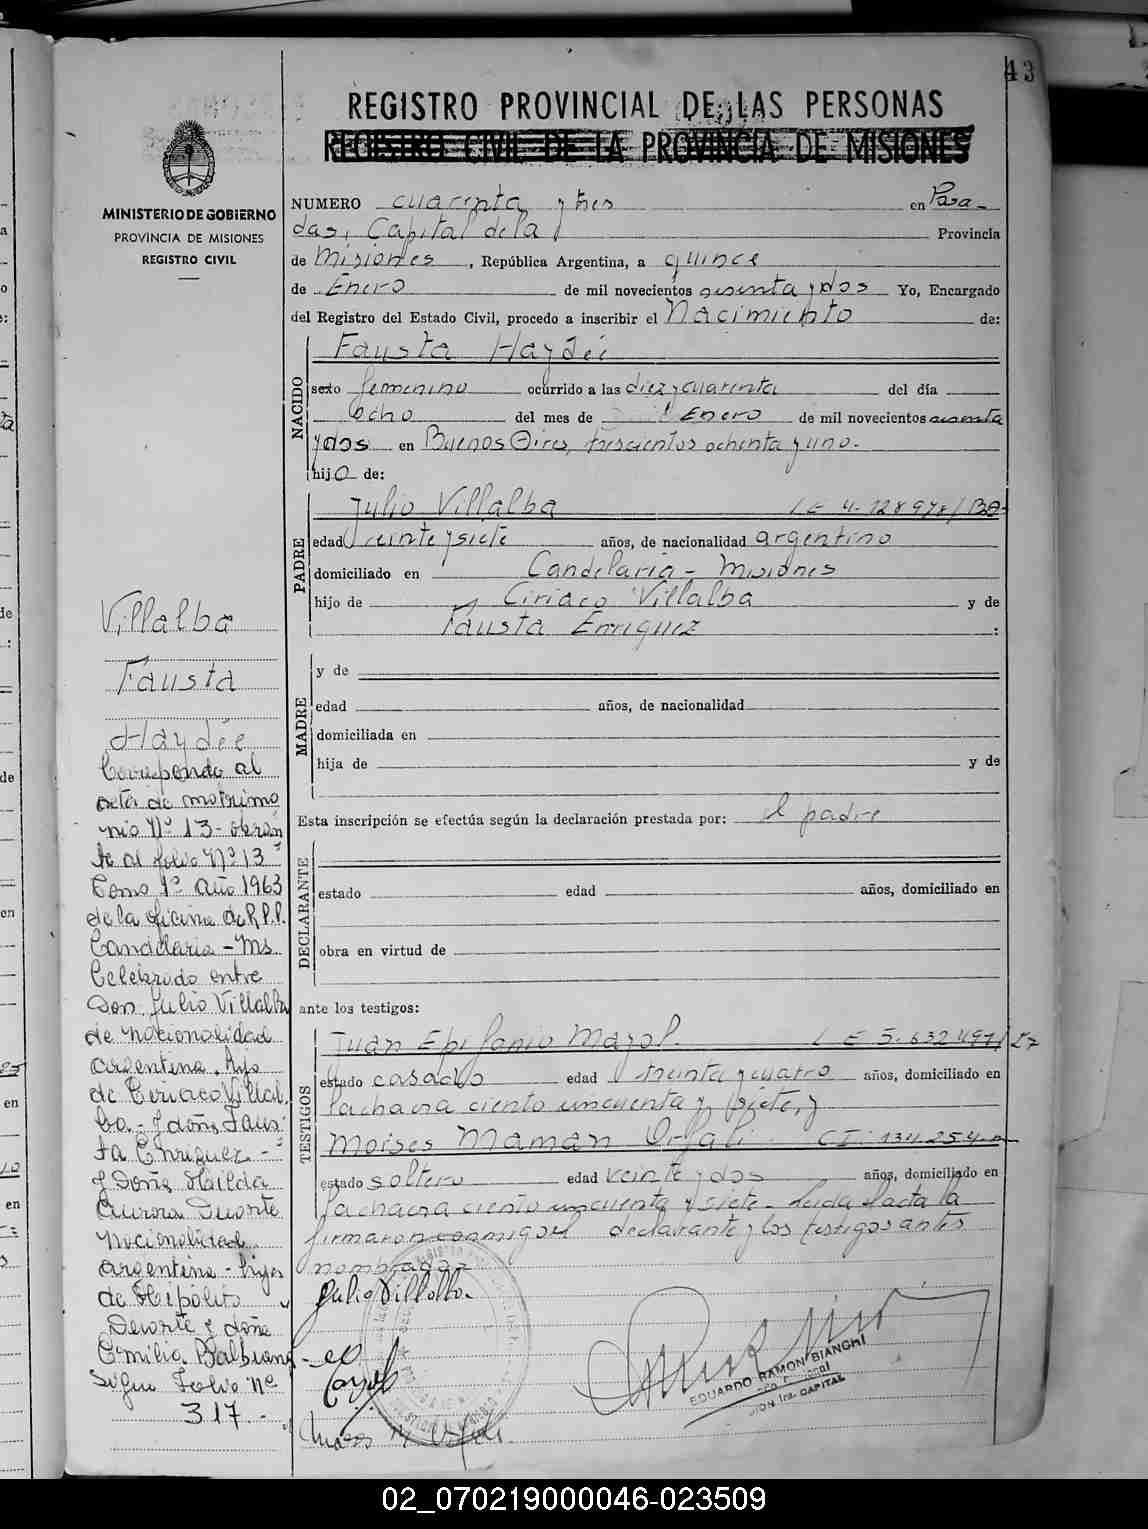 43
REGISTRO PROVINCIAL DE LAS PERSONAS
REGISTRO CIVIL DE LA PROVINCIA DE MISIONES
MINISTERIO DE GOBIERNO
PROVINCIA DE MISIONES
REGISTRO CIVIL
NUMERO cuarenta y tres en Posa-
das, Capital de la Provincia
de Misiones, República Argentina, a quince
de Enero de mil novecientos sesenta y dos Yo, Encargado
del Registro del Estado Civil, procedo a inscribir el Nacimiento de:
NACIDO
Fausta Haydée
sexo femenino ocurrido a las diez y cuarenta del día
ocho del mes de Enero de mil novecientos sesenta
y dos en Buenos Aires, trescientos ochenta y uno.
hijo de:
PADRE
Julio Villalba LE 4.128978/
edad veinte y siete años, de nacionalidad argentino
domiciliado en Candelaria - Misiones
hijo de Ciriaco Villalba y de
Fausta Enriquez :
MADRE
y de
edad años, de nacionalidad
domiciliada en
hija de y de
Esta inscripción se efectúa según la declaración prestada por: el padre
DECLARANTE
estado edad años, domiciliado en
obra en virtud de
ante los testigos:
TESTIGOS
Juan Epifanio Mazol. LE 5.632497/
estado casado edad treinta y cuatro años, domiciliado en
la chacra ciento cincuenta y siete, y
Moises Maman CI: 134.254
estado soltero edad veinte y dos años, domiciliado en
la chacra ciento cincuenta y siete. Leida el acta la
firmaron conmigo el declarante y los testigos antes
nombrados
Julio Villalba.
EDUARDO RAMON BIANGHI
CION 1ra. CAPITAL
Villalba
Fausta
Haydée
Corresponde al
acta de matrimo
nio Nº 13 - obran
te al folio Nº 13
Tomo 1º año 1963
de la oficina de R.P.P.
Candelaria - Ms.
Celebrado entre
Don Julio Villalba
de nacionalidad
argentina. hijo
de Ciriaco Villal
ba - y doña Faus
ta Enriquez -
y Doña Hilda
Aurora Duarte
nacionalidad
argentina - hija
de Hipólito
Duarte y doña
Emilia
Sigue Folio Nº
317.-
02_070219000046-023509